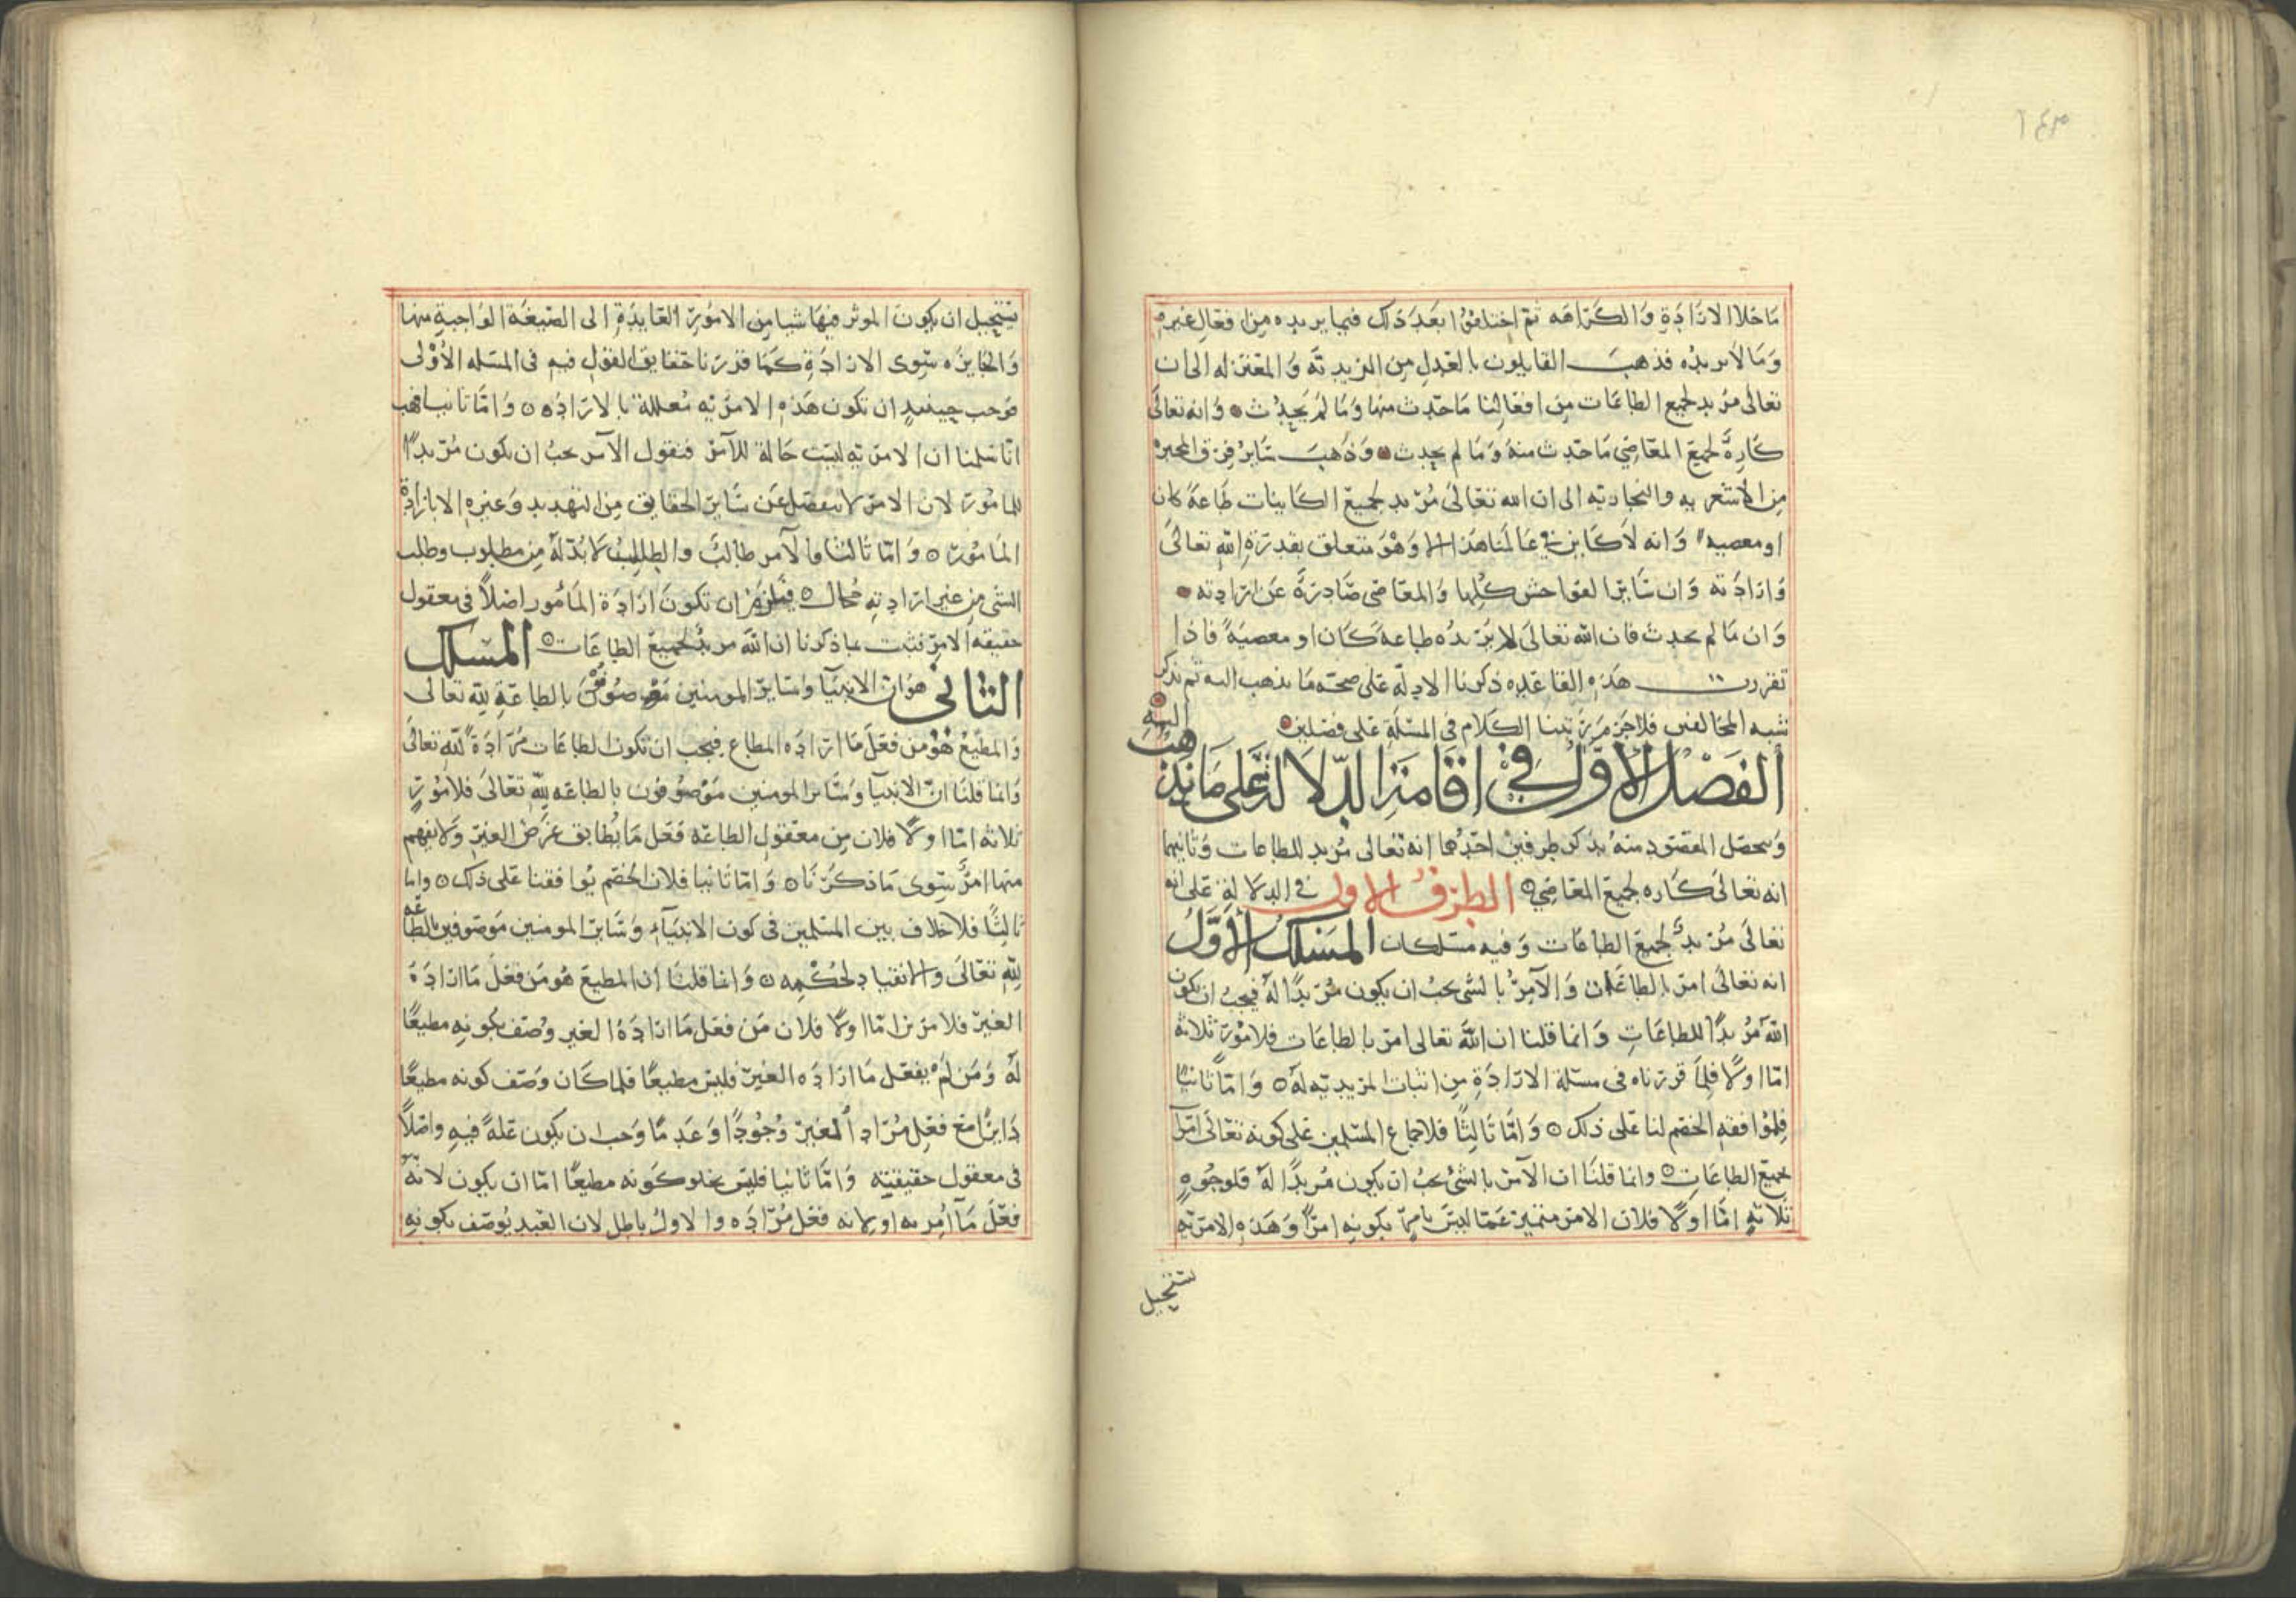 ١٤٣
ما خلا الارادة والكراهه ثم اختلفوا بعد ذلك فيما يريده من افعال غيره
وما لا يريده فذهب القايلون بالعدل من الزيدية والمعتزله الى ان
تعالى مريد لجميع الطاعات من افعالنا ما حدث منها وما لم يحدث وانه تعالى
كاره لجميع المعاصي ما حدث منه وما لم يحدث وذهب ساير فرق المجبرة
من الاشعريه والنجاديه الى ان الله تعالى مريد لجميع الكاينات طاعة كان
او معصيه وانه لا كاين في عالمنا هذا الا وهو متعلق بقدرة الله تعالى
وارادته وان ساير الفواحش كلها والمعاصي صادرة عن ارادته
وان ما لم يحدث فان الله تعالى لا يريده طاعة كان او معصية فاذا
تقررت هذه القاعده ذكرنا الادلة على صحة ما نذهب اليه ثم نذكر
شبه المخالفين فلا جرم رتبنا الكلام في المسئلة على فصلين
الفصل الاول في اقامة الدلالة على ما نذهب اليه
ويحصل المقصود منه بذكر طرفين احدهما انه تعالى مريد للطاعات وثانيهما
انه تعالى كاره لجميع المعاصي الطرف الاول في الدلالة على انه
تعالى مريد لجميع الطاعات وفيه مسلكان المسلك الاول
انه تعالى امر بالطاعات والآمر بالشي يجب ان يكون مريدا له فيجب ان يكون
الله مريدا للطاعات وانما قلنا ان الله تعالى امر بالطاعات فلامور ثلاثة
اما اولا فلما قررناه في مسئلة الارادة من اثبات المريدية له واما ثانيا
فلموافقه الخصم لنا على ذلك واما ثالثا فلاجماع المسلمين على كونه تعالى امرا
بجميع الطاعات وانما قلنا ان الآمر بالشي يجب ان يكون مريدا له فلوجوه
ثلاثة اما اولا فلان الامر متميز عما ليس بامر بكونه امرا وهذه الامرية
تستحيل
يستحيل ان يكون الموثر فيها شيا من الامور العايدة الى الصيغة الواجبة منها
والجايزه سوى الارادة كما قررنا حقايق القول فيه في المسئله الأولى
فوجب حينيذ ان تكون هذه الامرية معللة بالارادة واما ثانيا فهب
انا سلمنا ان الامرية ليست حالة للآمر فنقول الآمر يجب ان يكون مريدا
للمامور لان الامر لا ينفصل عن ساير الحقايق من التهديد وغيره الا بارادة
المامور واما ثالثا فالآمر طالب والطالب لا بد له من مطلوب وطلب
الشي من غير ارادته محال فيلزم ان تكون ارادة المأمور اصلا في معقول
حقيقه الامر فثبت بما ذكرنا ان الله مريد لجميع الطاعات المسلك
الثاني هو ان الانبيا وساير المومنين موصوفون بالطاعة لله تعالى
والمطيع هو من فعل ما اراده المطاع فيجب ان تكون الطاعات مرادة لله تعالى
وانما قلنا ان الانبيآ وساير المومنين موصوفون بالطاعه لله تعالى فلامور
ثلاثه اما اولا فلان من معقول الطاعه فعل ما يطابق غرض الغير ولا يفهم
منها امر سوى ما ذكرنا واما ثانيا فلان الخصم يوافقنا على ذلك واما
ثالثا فلا خلاف بين المسلمين في كون الانبيآء وساير المومنين موصوفين بالطاعه
لله تعالى والانقياد لحكمه وانما قلنا ان المطيع هو من فعل ما ارادة
الغير فلامرين اما اولا فلان من فعل ما اراده الغير وصف بكونه مطيعا
له ومن لم يفعل ما اراده الغير فليس مطيعا فلما كان وصف كونه مطيعا
دايرا مع فعل مراد الغير وجودا وعدما وجب ان يكون علة فيه واصلا
في معقول حقيقيته واما ثانيا فليس يخلو كونه مطيعا اما ان يكون لانه
فعل مآ امر به او لانه فعل مراده والاول باطل لان العبد يوصف بكونه